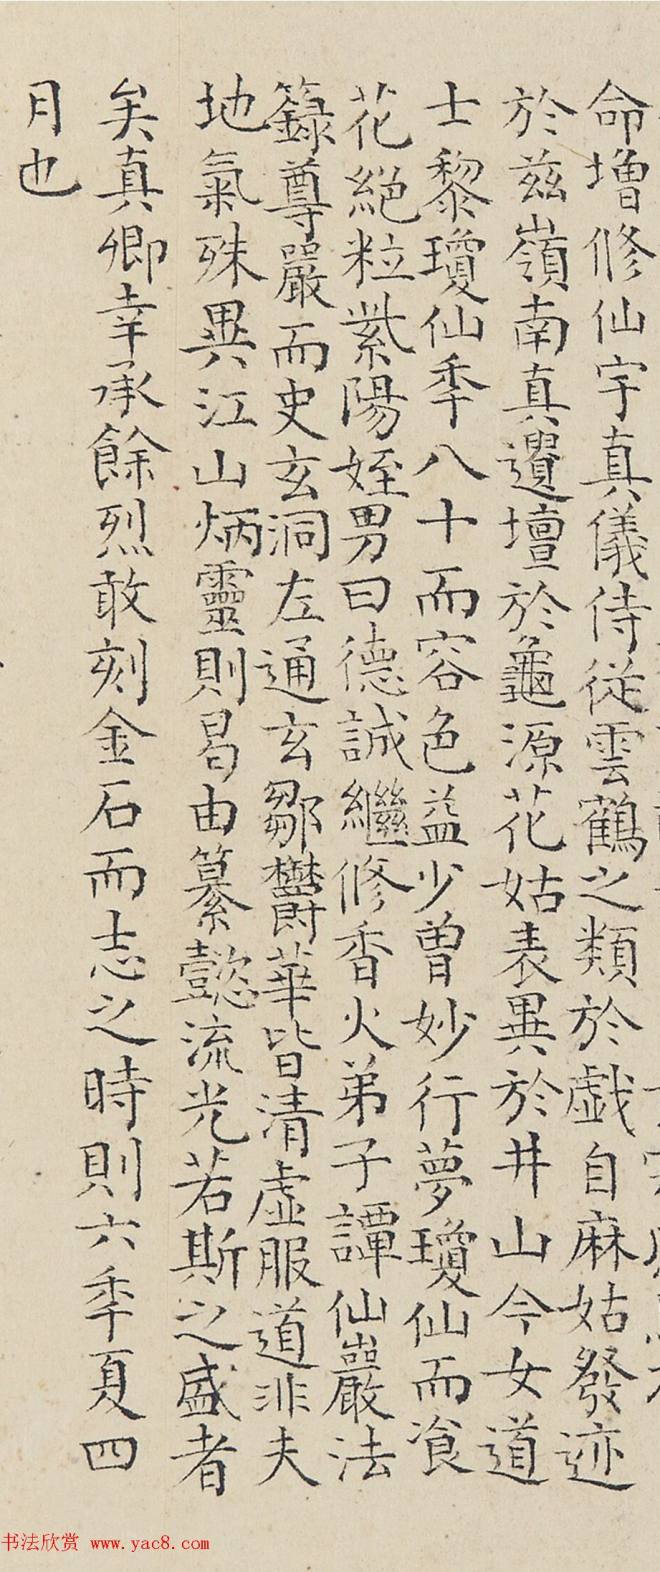 命增修仙宇真儀侍從雲鶴之類於戯自麻姑發迹
於茲嶺南真遺壇於龜源花姑表異於井山今女道
士黎瓊仙秊八十而容色益少曽妙行夢瓊仙而飡
花絕粒紫陽姪男曰德誠繼修香火弟子譚仙巖法
籙尊嚴而史玄洞左通玄鄒欝華皆清虛服道非夫
地氣殊異江山炳靈則曷由纂懿流光若斯之盛者
矣真卿幸承餘烈敢刻金石而志之時則六秊夏四
月也
书法欣赏 www.yac8.com